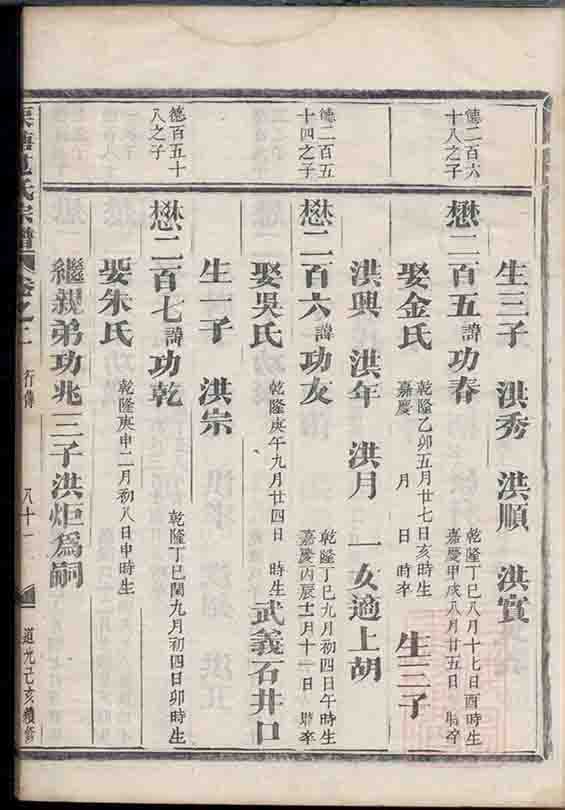 生三子 洪秀 洪順 洪實
德二百六十八之子
懋二百五諱功春 乾隆丁巳八月十七日酉時生 嘉慶甲戌八月廿五日 時卒
娶金氏 乾隆乙卯五月廿七日亥時生 嘉慶 月 日 時卒 生三子
洪興 洪年 洪月 一女適上胡
德二百五十四之子
懋二百六諱功友 乾隆丁巳九月初四日午時生 嘉慶丙辰十一月十一日 時卒
娶吳氏 乾隆庚午九月廿四日 時生 武義石井口
生一子 洪宗
德百五十八之子
懋二百七諱功乾 乾隆丁巳閏九月初四日卯時生
娶朱氏 乾隆庚申二月初八日申時生
繼親弟功兆三子洪炬為嗣
氏宗譜 卷之三 行傳 八十一 道光己亥續修